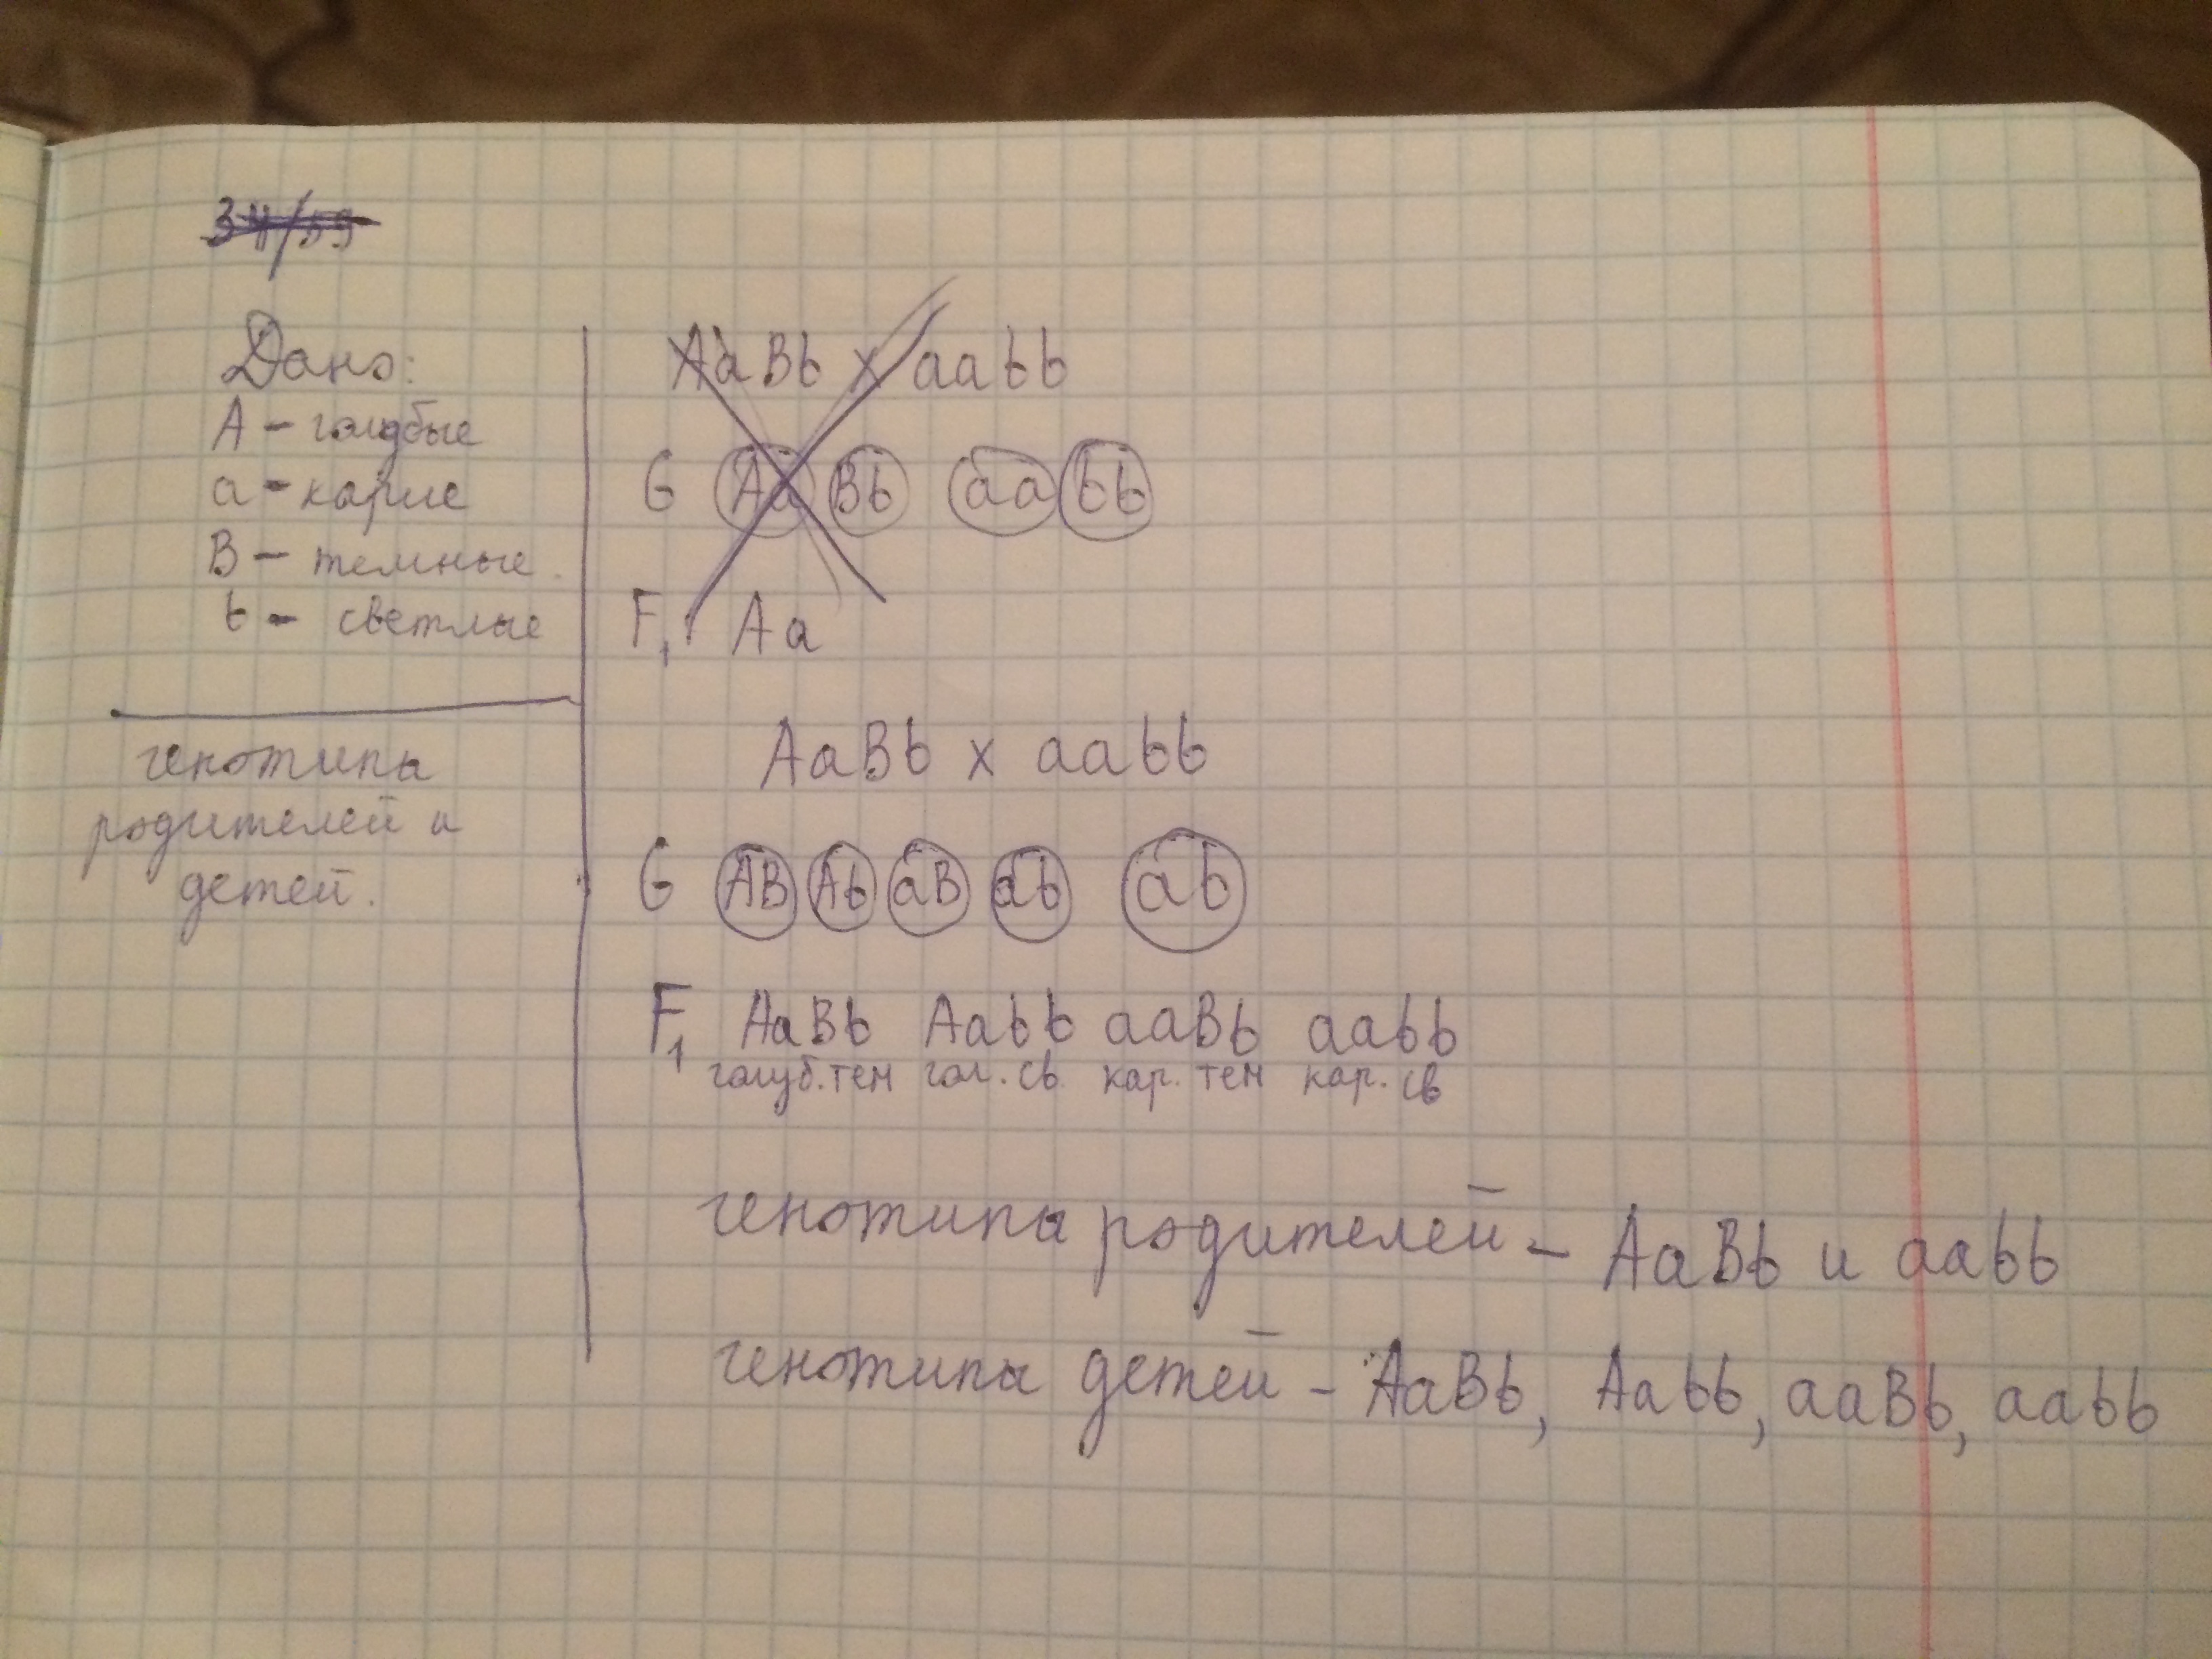 Дано:
А – голубые
а - карие
В – темные.
b - светлые
генотипы
родителей и
детей.
AaBb x aabb
G Aa Bb aa bb
F1 Aa
AaBb x aabb
G AB Ab aB ab ab
F1 AaBb Aabb aaBb aabb
голуб.тем гол.св кар.тем кар.св
генотипы родителей – AaBb и aabb
генотипы детей – AaBb, Aabb, aaBb, aabb